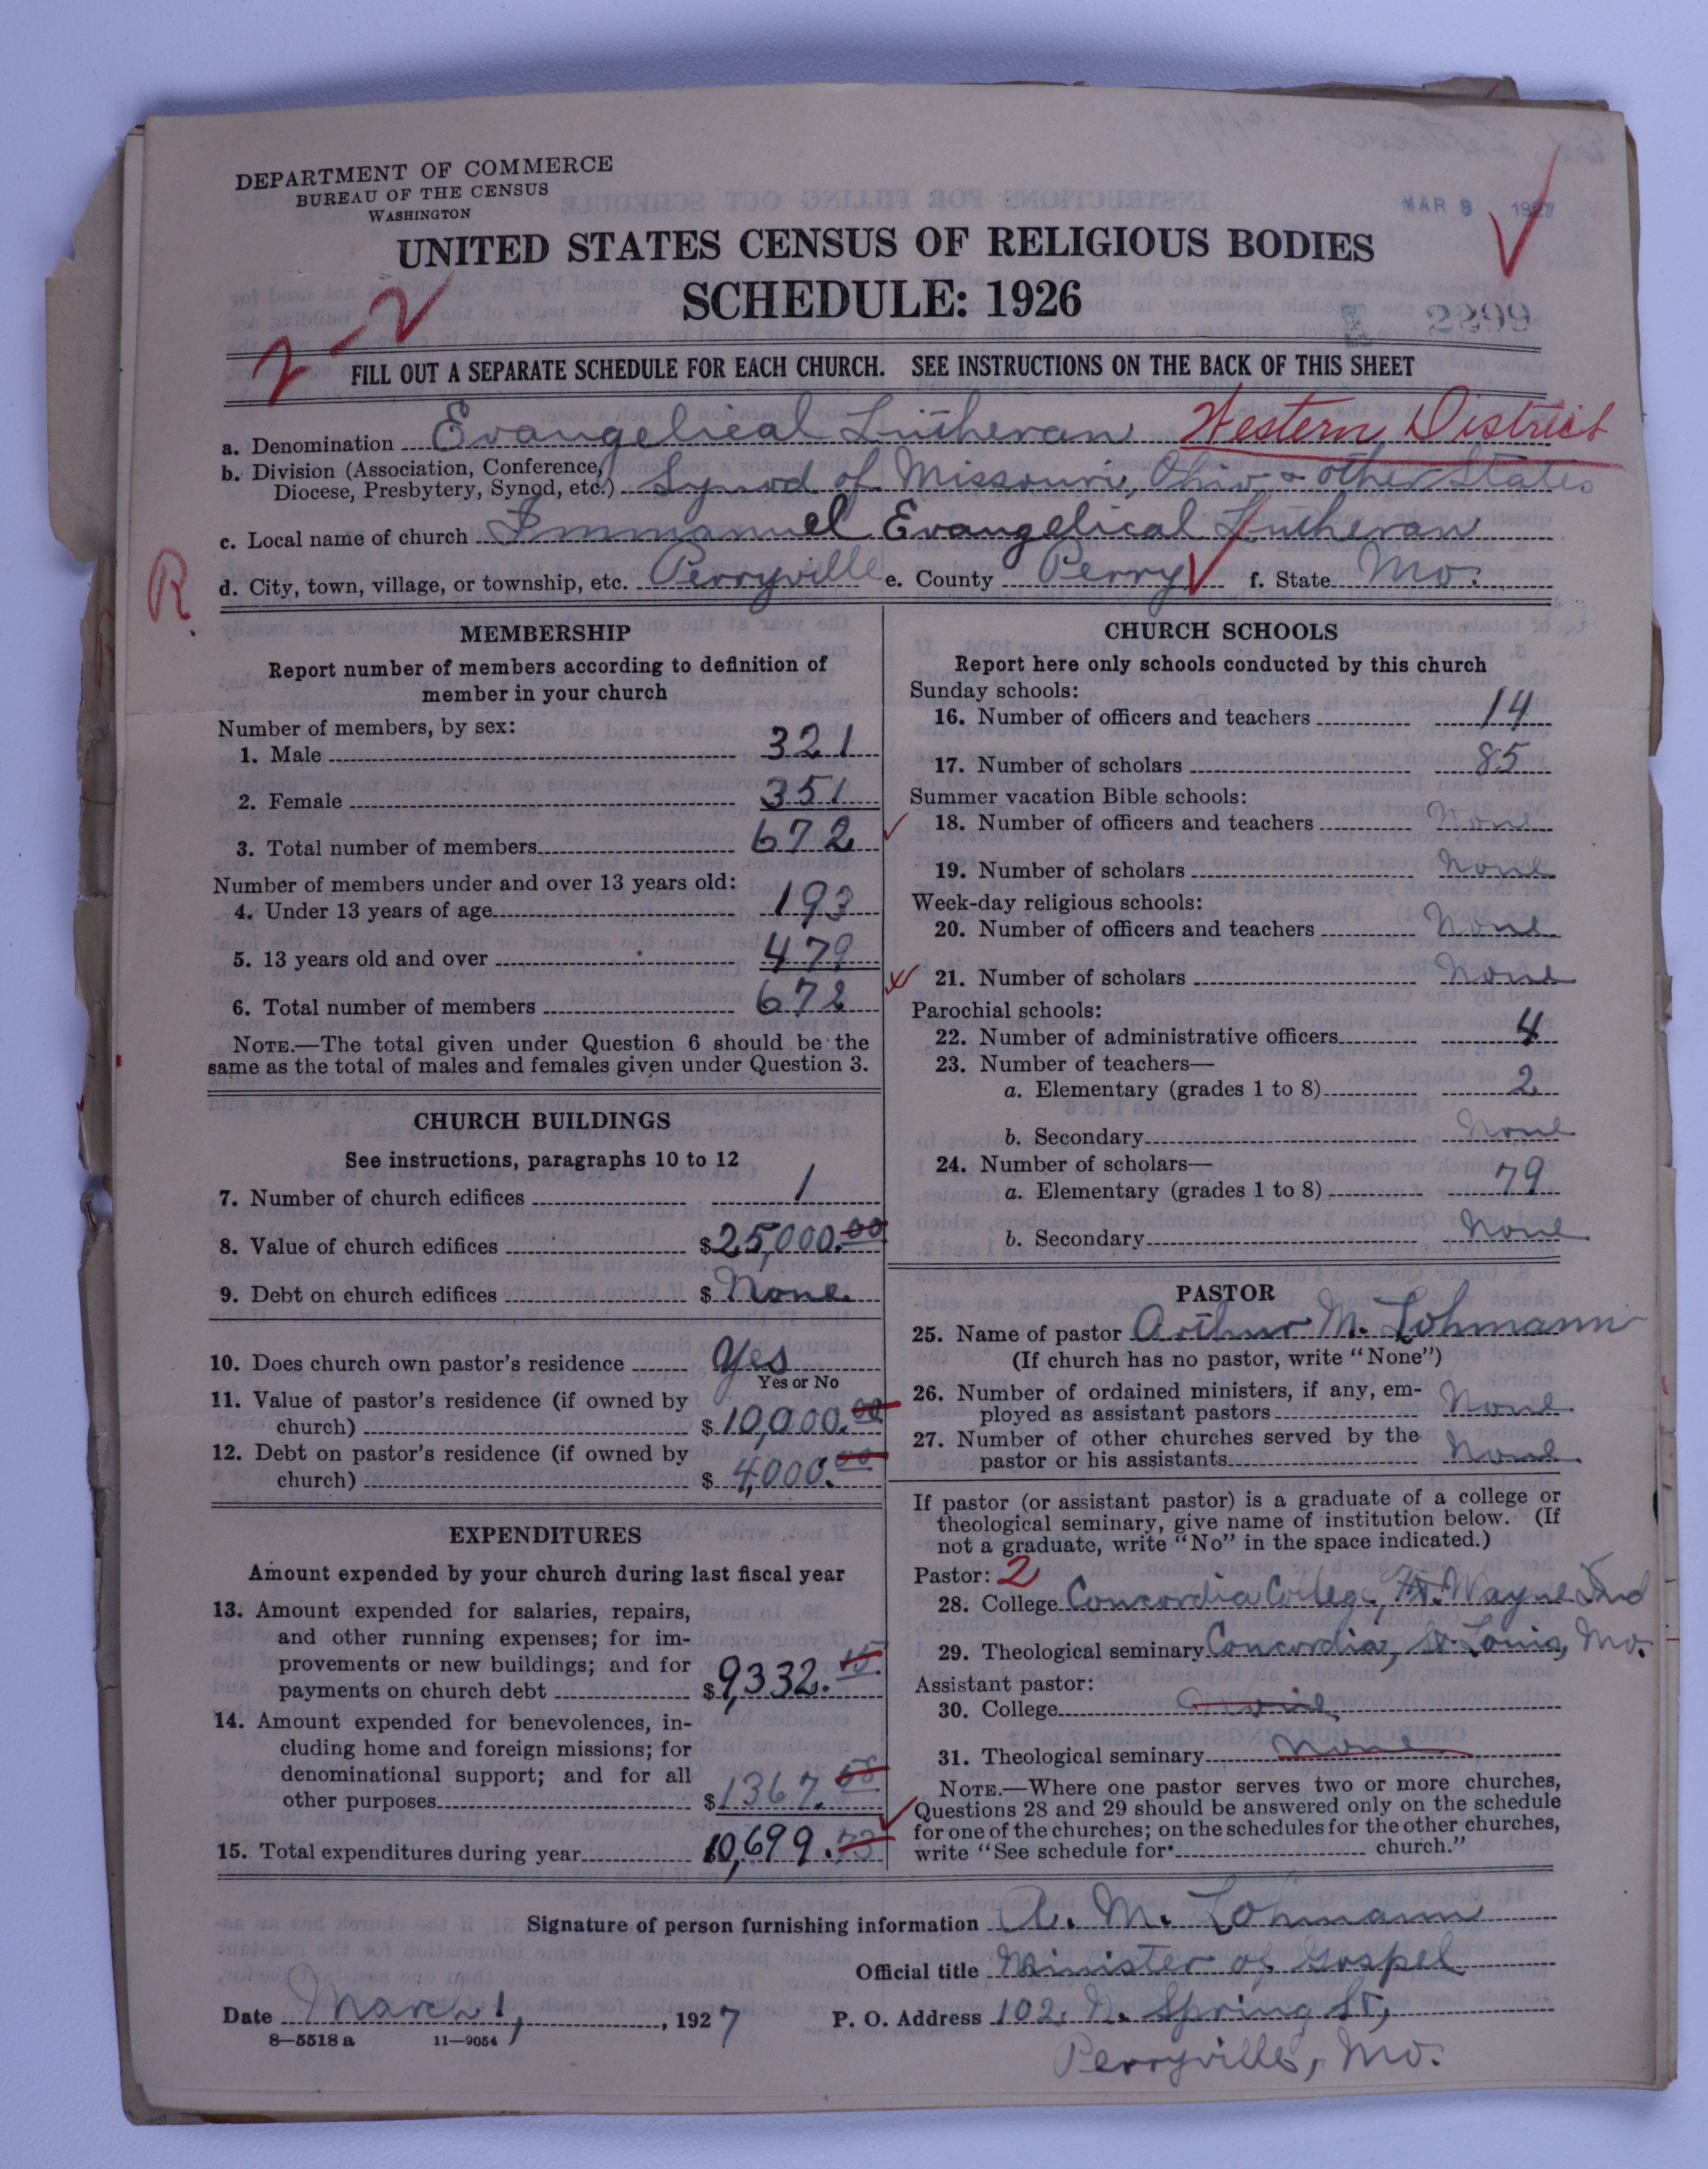 DEPARTMENT OF COMMERCE
BUREAU OF THE CENSUS
WASHINGTON
MAR 9 1927
UNITED STATES CENSUS OF RELIGIOUS BODIES
SCHEDULE: 1926
2-2
A 2899
FILL OUT A SEPARATE SCHEDULE FOR EACH CHURCH. SEE INSTRUCTIONS ON THE BACK OF THIS SHEET
a. Denomination Evangelical Lutheran Western District
b. Division (Association, Conference,
Diocese, Presbytery, Synod, etc.) Synod of Missouri, Ohio, & other States
c. Local name of church Immanuel Evangelical Lutheran
R
d. City, town, village, or township, etc. Perryville e. County Perry f. State Mo.
MEMBERSHIP
Report number of members according to definition of
member in your church
Number of members, by sex:
1. Male 321
2. Female 351
3. Total number of members 672
Number of members under and over 13 years old:
4. Under 13 years of age 193
5. 13 years old and over 479
6. Total number of members 672
NOTE.—The total given under Question 6 should be the
same as the total of males and females given under Question 3.
CHURCH BUILDINGS
See instructions, paragraphs 10 to 12
7. Number of church edifices 1
8. Value of church edifices $25,000.00
9. Debt on church edifices $ None
10. Does church own pastor's residence Yes
Yes or No
11. Value of pastor's residence (if owned by
church) $10,000.00
12. Debt on pastor's residence (if owned by
church) $4,000.00
EXPENDITURES
Amount expended by your church during last fiscal year
13. Amount expended for salaries, repairs,
and other running expenses; for im-
provements or new buildings; and for
payments on church debt $9,332.15
14. Amount expended for benevolences, in-
cluding home and foreign missions; for
denominational support; and for all
other purposes $1367.58
15. Total expenditures during year 10,699.73
CHURCH SCHOOLS
Report here only schools conducted by this church
Sunday schools:
16. Number of officers and teachers 14
17. Number of scholars 85
Summer vacation Bible schools:
18. Number of officers and teachers None
19. Number of scholars None
Week-day religious schools:
20. Number of officers and teachers None
21. Number of scholars None
Parochial schools:
22. Number of administrative officers 4
23. Number of teachers—
a. Elementary (grades 1 to 8) 2
b. Secondary None
24. Number of scholars—
a. Elementary (grades 1 to 8) 79
b. Secondary None
PASTOR
25. Name of pastor Arthur M. Lohmann
(If church has no pastor, write "None")
26. Number of ordained ministers, if any, em-
ployed as assistant pastors None
27. Number of other churches served by the
pastor or his assistants None
If pastor (or assistant pastor) is a graduate of a college or
theological seminary, give name of institution below. (If
not a graduate, write "No" in the space indicated.)
Pastor: 2
28. College Concordia College, Ft. Wayne Ind
29. Theological seminary Concordia, St. Louis, Mo.
Assistant pastor:
30. College None
31. Theological seminary None
NOTE.—Where one pastor serves two or more churches,
Questions 28 and 29 should be answered only on the schedule
for one of the churches; on the schedules for the other churches,
write "See schedule for church."
Signature of person furnishing information A. M. Lohmann
Official title Minister of Gospel
Date March 1, 1927 P. O. Address 102. N. Spring St,
8—5518a 11—9054
Perryville, Mo.